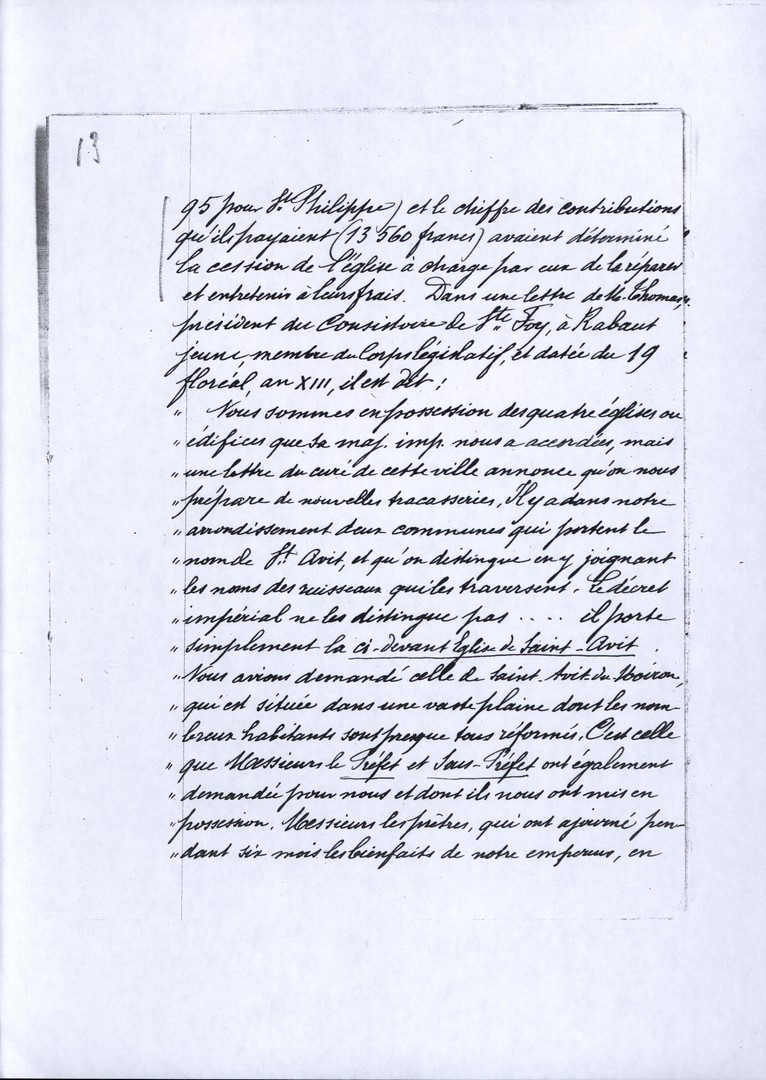 13
95 pour St Philippe) et le chiffre des contributions
qu'ils payaient (13 560 francs) avaient déterminé
la cession de l'église à charge par eux de la réparer
et entretenir à leurs frais. Dans une lettre de M. Thomas,
président du Consistoire de Ste Foy, à Rabaut
jeune, membre du Corps législatif, et datée du 19
floréal, an XIII, il est dit :
" Nous sommes en possession des quatre églises ou
" édifices que sa maj. imp. nous a accordées, mais
" une lettre du curé de cette ville annonce qu'on nous
" prépare de nouvelles tracasseries. Il y a dans notre
" arrondissement deux communes qui portent le
" nom de St Avit, et qu'on distingue en y joignant
" les noms des ruisseaux qui les traversent. Le décret
" impérial ne les distingue pas .... il porte
" simplement la ci-devant Eglise de Saint-Avit.
" Nous avions demandé celle de Saint-Avit du
" qui est située dans une vaste plaine dont les nom-
" breux habitants sont presque tous réformés. C'est celle
" que Messieurs le Préfet et Sous-Préfet ont également
" demandée pour nous et dont ils nous ont mis en
" possession. Messieurs les prêtres, qui ont ajourné pen-
" dant six mois les bienfaits de notre empereur, en